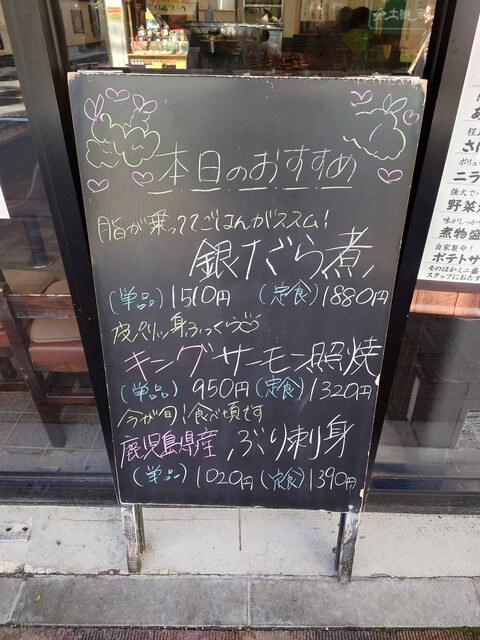 本日のおすすめ
脂が乗っててごはんがススム!
銀だら煮
(単品)1510円 (定食)1880円
皮パリッ身ふっくら
キングサーモン照焼
(単品)950円(定食)1320円
今が旬!食べ頃です
鹿児島県産 ぶり刺身
(単品)1020円(定食)1390円
ニラ
強火で
野菜炒
味がしっか
煮物盛
自家製
ポテトサ
そのほかミニ盛
スタッフにおた